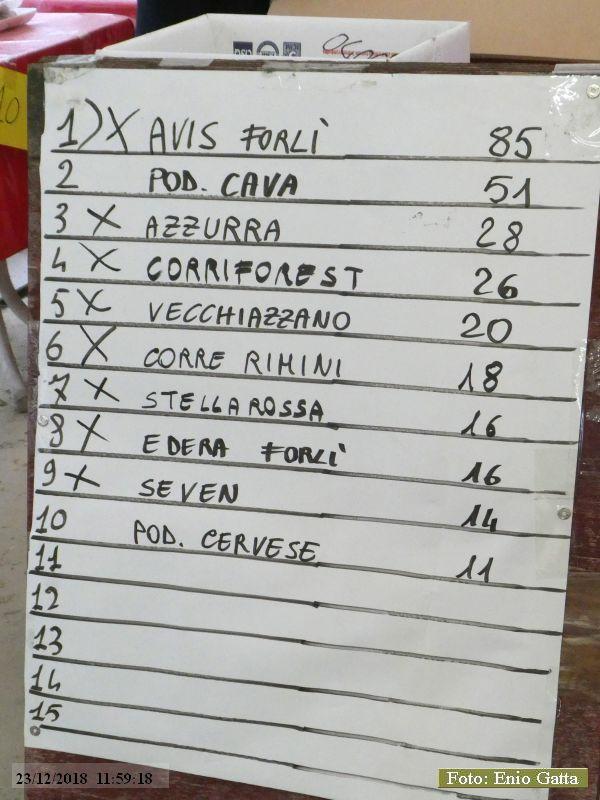 1) X AVIS FORLÌ 85
2 POD. CAVA 51
3 X AZZURRA 28
4 X CORRIFOREST 26
5 X VECCHIAZZANO 20
6 X CORRE RIMINI 18
7 X STELLA ROSSA 16
8 X EDERA FORLÌ 16
9 X SEVEN 14
10 POD. CERVESE 11
11
12
13
14
15
23/12/2018 11:59:18
Foto: Enio Gatta